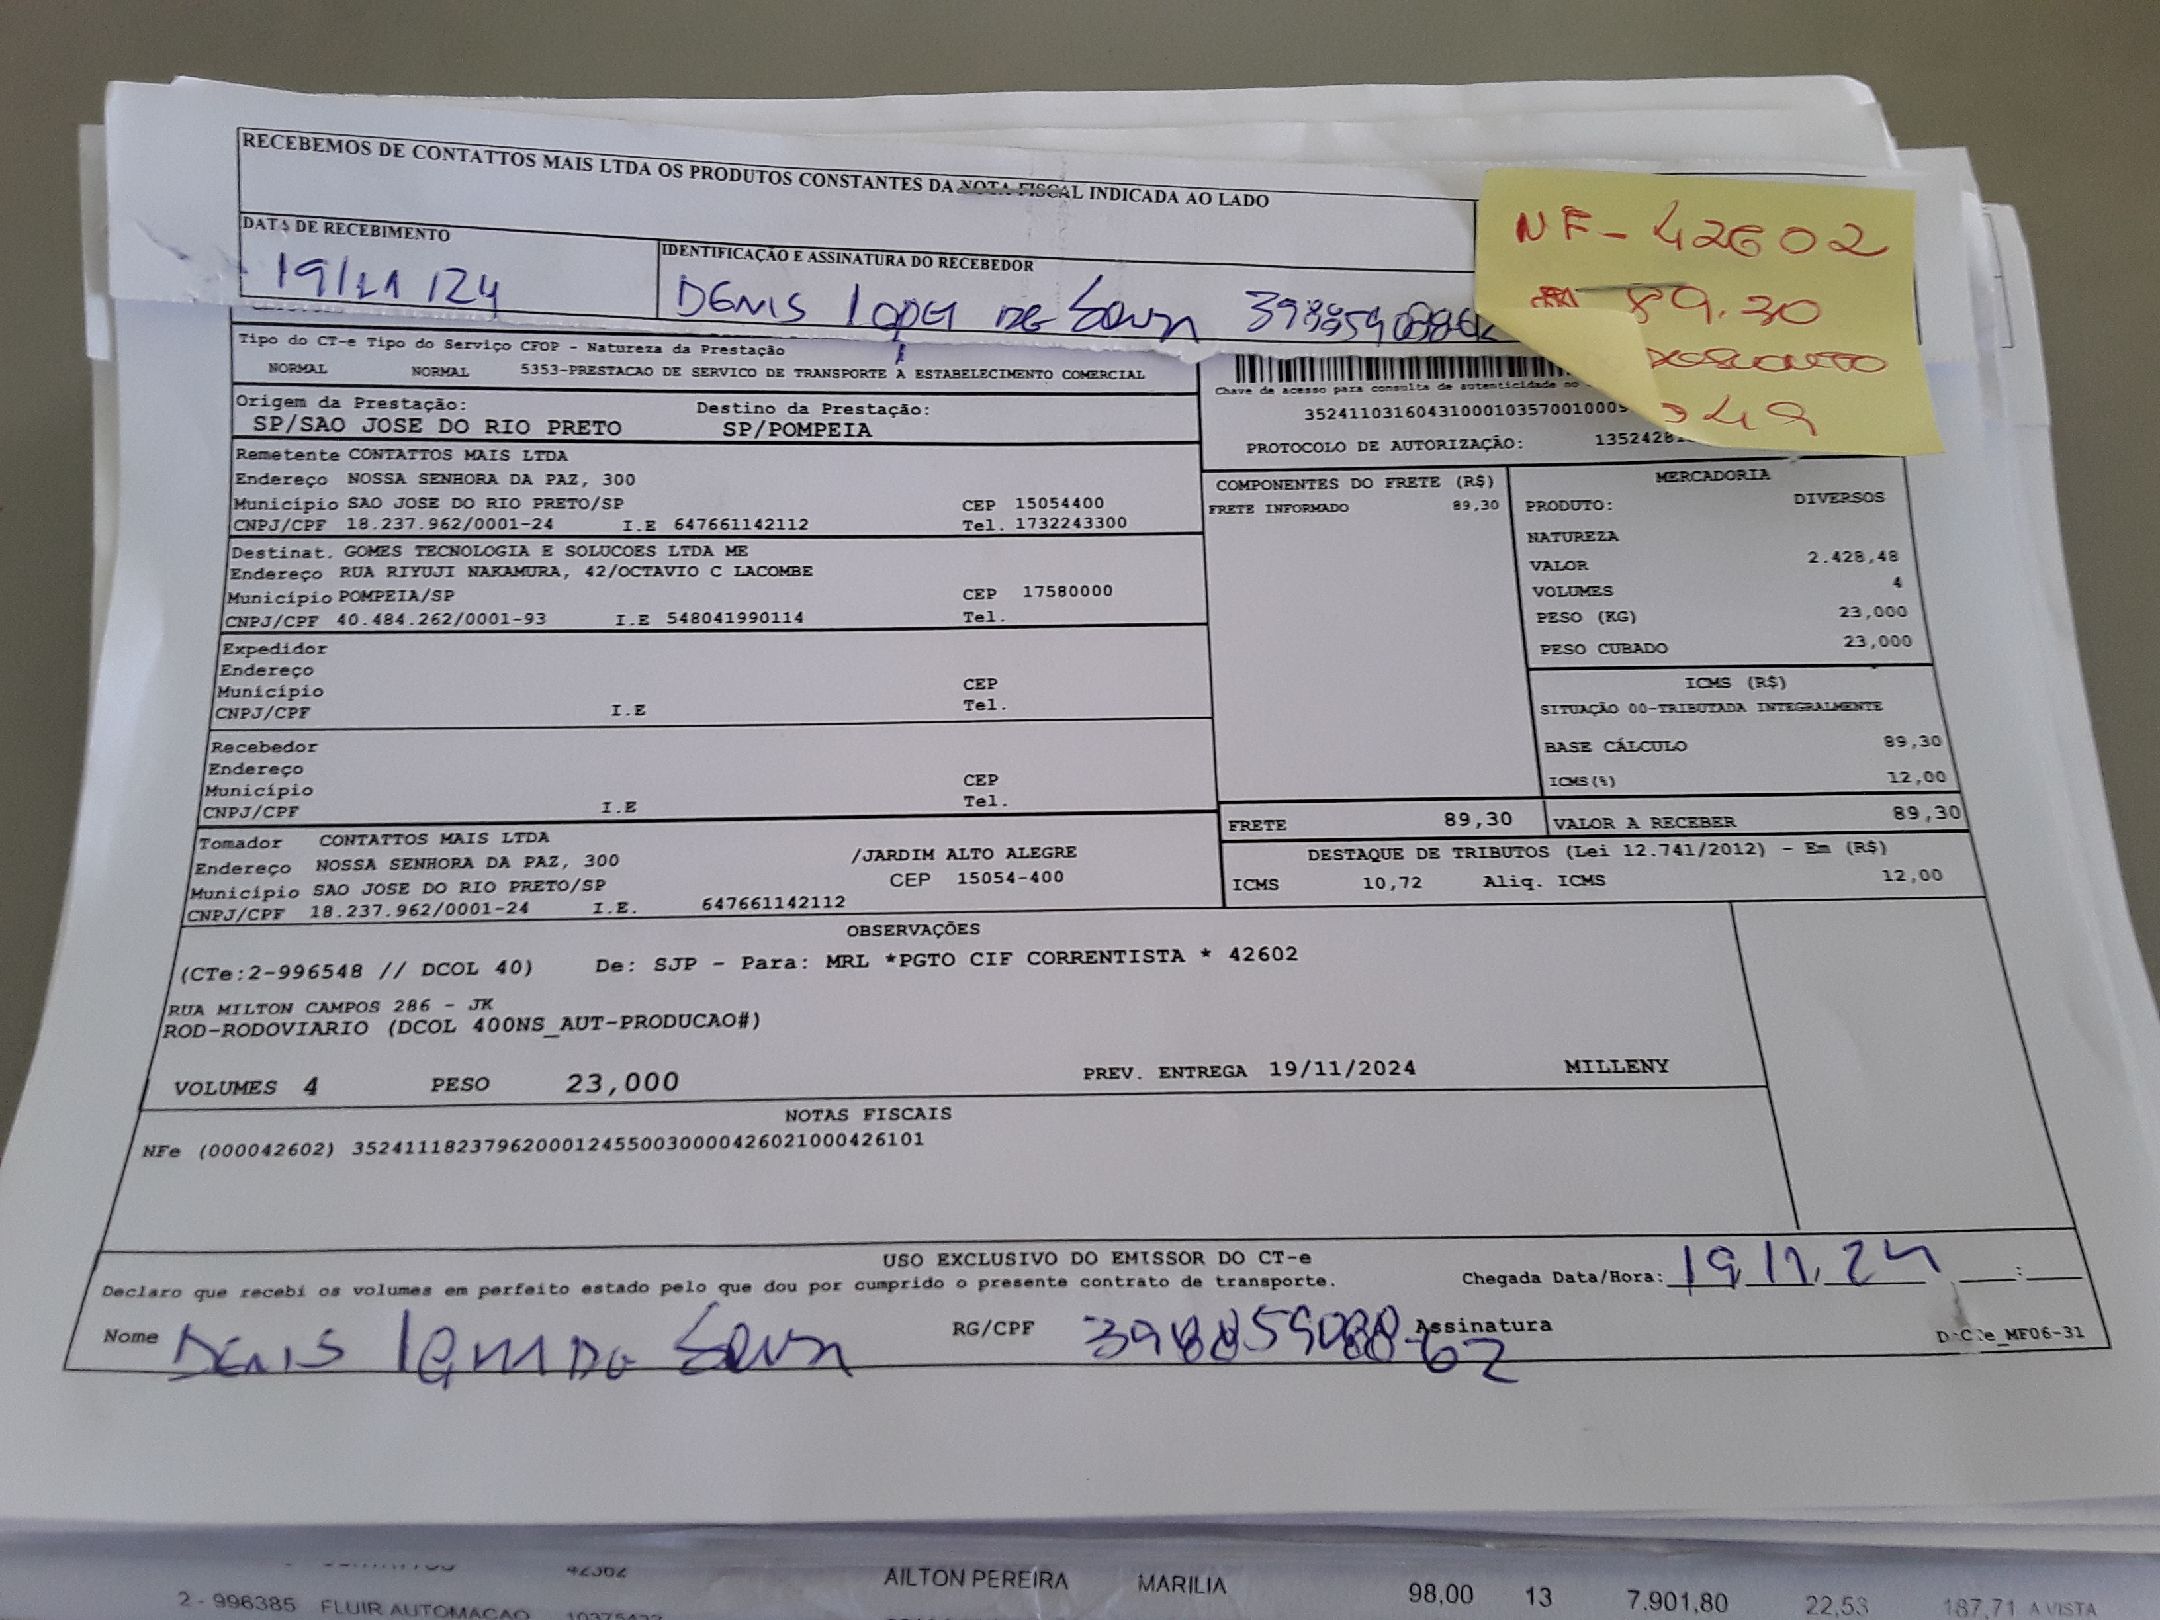 RECEBEMOS DE CONTATTOS MAIS LTDA OS PRODUTOS CONSTANTES DA NOTA FISCAL INDICADA AO LADO
DATA DE RECEBIMENTO
19/11/24
IDENTIFICAÇÃO E ASSINATURA DO RECEBEDOR
DENIS DE Souza
NF-42602
89.30
Tipo do CT-e Tipo do Serviço CFOP - Natureza da Prestação
NORMAL NORMAL 5353-PRESTACAO DE SERVICO DE TRANSPORTE A ESTABELECIMENTO COMERCIAL
Chave de acesso para consulta de autenticidade no
Origem da Prestação: Destino da Prestação:
SP/SAO JOSE DO RIO PRETO SP/POMPEIA
PROTOCOLO DE AUTORIZAÇÃO:
Remetente CONTATTOS MAIS LTDA
Endereço NOSSA SENHORA DA PAZ, 300
Município SAO JOSE DO RIO PRETO/SP CEP 15054400
CNPJ/CPF 18.237.962/0001-24 I.E 647661142112 Tel. 1732243300
Destinat. GOMES TECNOLOGIA E SOLUCOES LTDA ME
Endereço RUA RIYUJI NAKAMURA, 42/OCTAVIO C LACOMBE
Município POMPEIA/SP CEP 17580000
CNPJ/CPF 40.484.262/0001-93 I.E 548041990114 Tel.
Expedidor
Endereço
Município CEP
CNPJ/CPF I.E Tel.
Recebedor
Endereço
Município CEP
CNPJ/CPF I.E Tel.
Tomador CONTATTOS MAIS LTDA
Endereço NOSSA SENHORA DA PAZ, 300 /JARDIM ALTO ALEGRE
Município SAO JOSE DO RIO PRETO/SP CEP 15054-400
CNPJ/CPF 18.237.962/0001-24 I.E. 647661142112
COMPONENTES DO FRETE (R$)
FRETE INFORMADO 89,30
MERCADORIA
PRODUTO: DIVERSOS
NATUREZA
VALOR 2.428,48
VOLUMES 4
PESO (KG) 23,000
PESO CUBADO 23,000
ICMS (R$)
SITUAÇÃO 00-TRIBUTADA INTEGRALMENTE
BASE CÁLCULO 89,30
ICMS(%) 12,00
FRETE 89,30 VALOR A RECEBER 89,30
DESTAQUE DE TRIBUTOS (Lei 12.741/2012) - Em (R$)
ICMS 10,72 Aliq. ICMS 12,00
OBSERVAÇÕES
(CTe:2-996548 // DCOL 40) De: SJP - Para: MRL *PGTO CIF CORRENTISTA * 42602
RUA MILTON CAMPOS 286 - JK
ROD-RODOVIARIO (DCOL 400NS_AUT-PRODUCAO#)
VOLUMES 4 PESO 23,000 PREV. ENTREGA 19/11/2024 MILLENY
NOTAS FISCAIS
NFe (000042602) 35241118237962000124550030000426021000426101
USO EXCLUSIVO DO EMISSOR DO CT-e
Declaro que recebi os volumes em perfeito estado pelo que dou por cumprido o presente contrato de transporte.
Chegada Data/Hora: 19/11/24 __:__
Nome DENIS Souza RG/CPF Assinatura
42562
AILTON PEREIRA MARILIA 98,00 13 7.901,80 22,53 187,71 A VISTA
2 - 996385 FLUIR AUTOMACAO